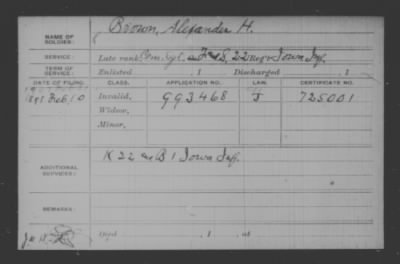 NAME OF SOLDIER: Brown, Alexander H.
SERVICE: Late rank Com. Sgt. F & S, 22 Reg't Iowa Inf.
TERM OF SERVICE: Enlisted , 1 Discharged , 1
DATE OF FILING. CLASS. APPLICATION NO. LAW. CERTIFICATE NO.
1891 Feb. 10 Invalid, 993468 J 725001
Widow,
Minor,
ADDITIONAL SERVICES: K 22 & B 1 Iowa Inf.
REMARKS:
Died , 1 , at